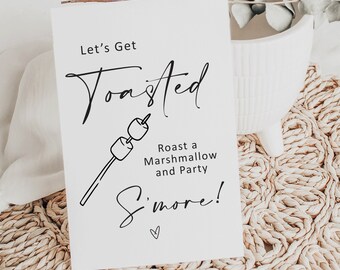 Let's Get
Toasted
Roast a
Marshmallow
and Party
S'more!